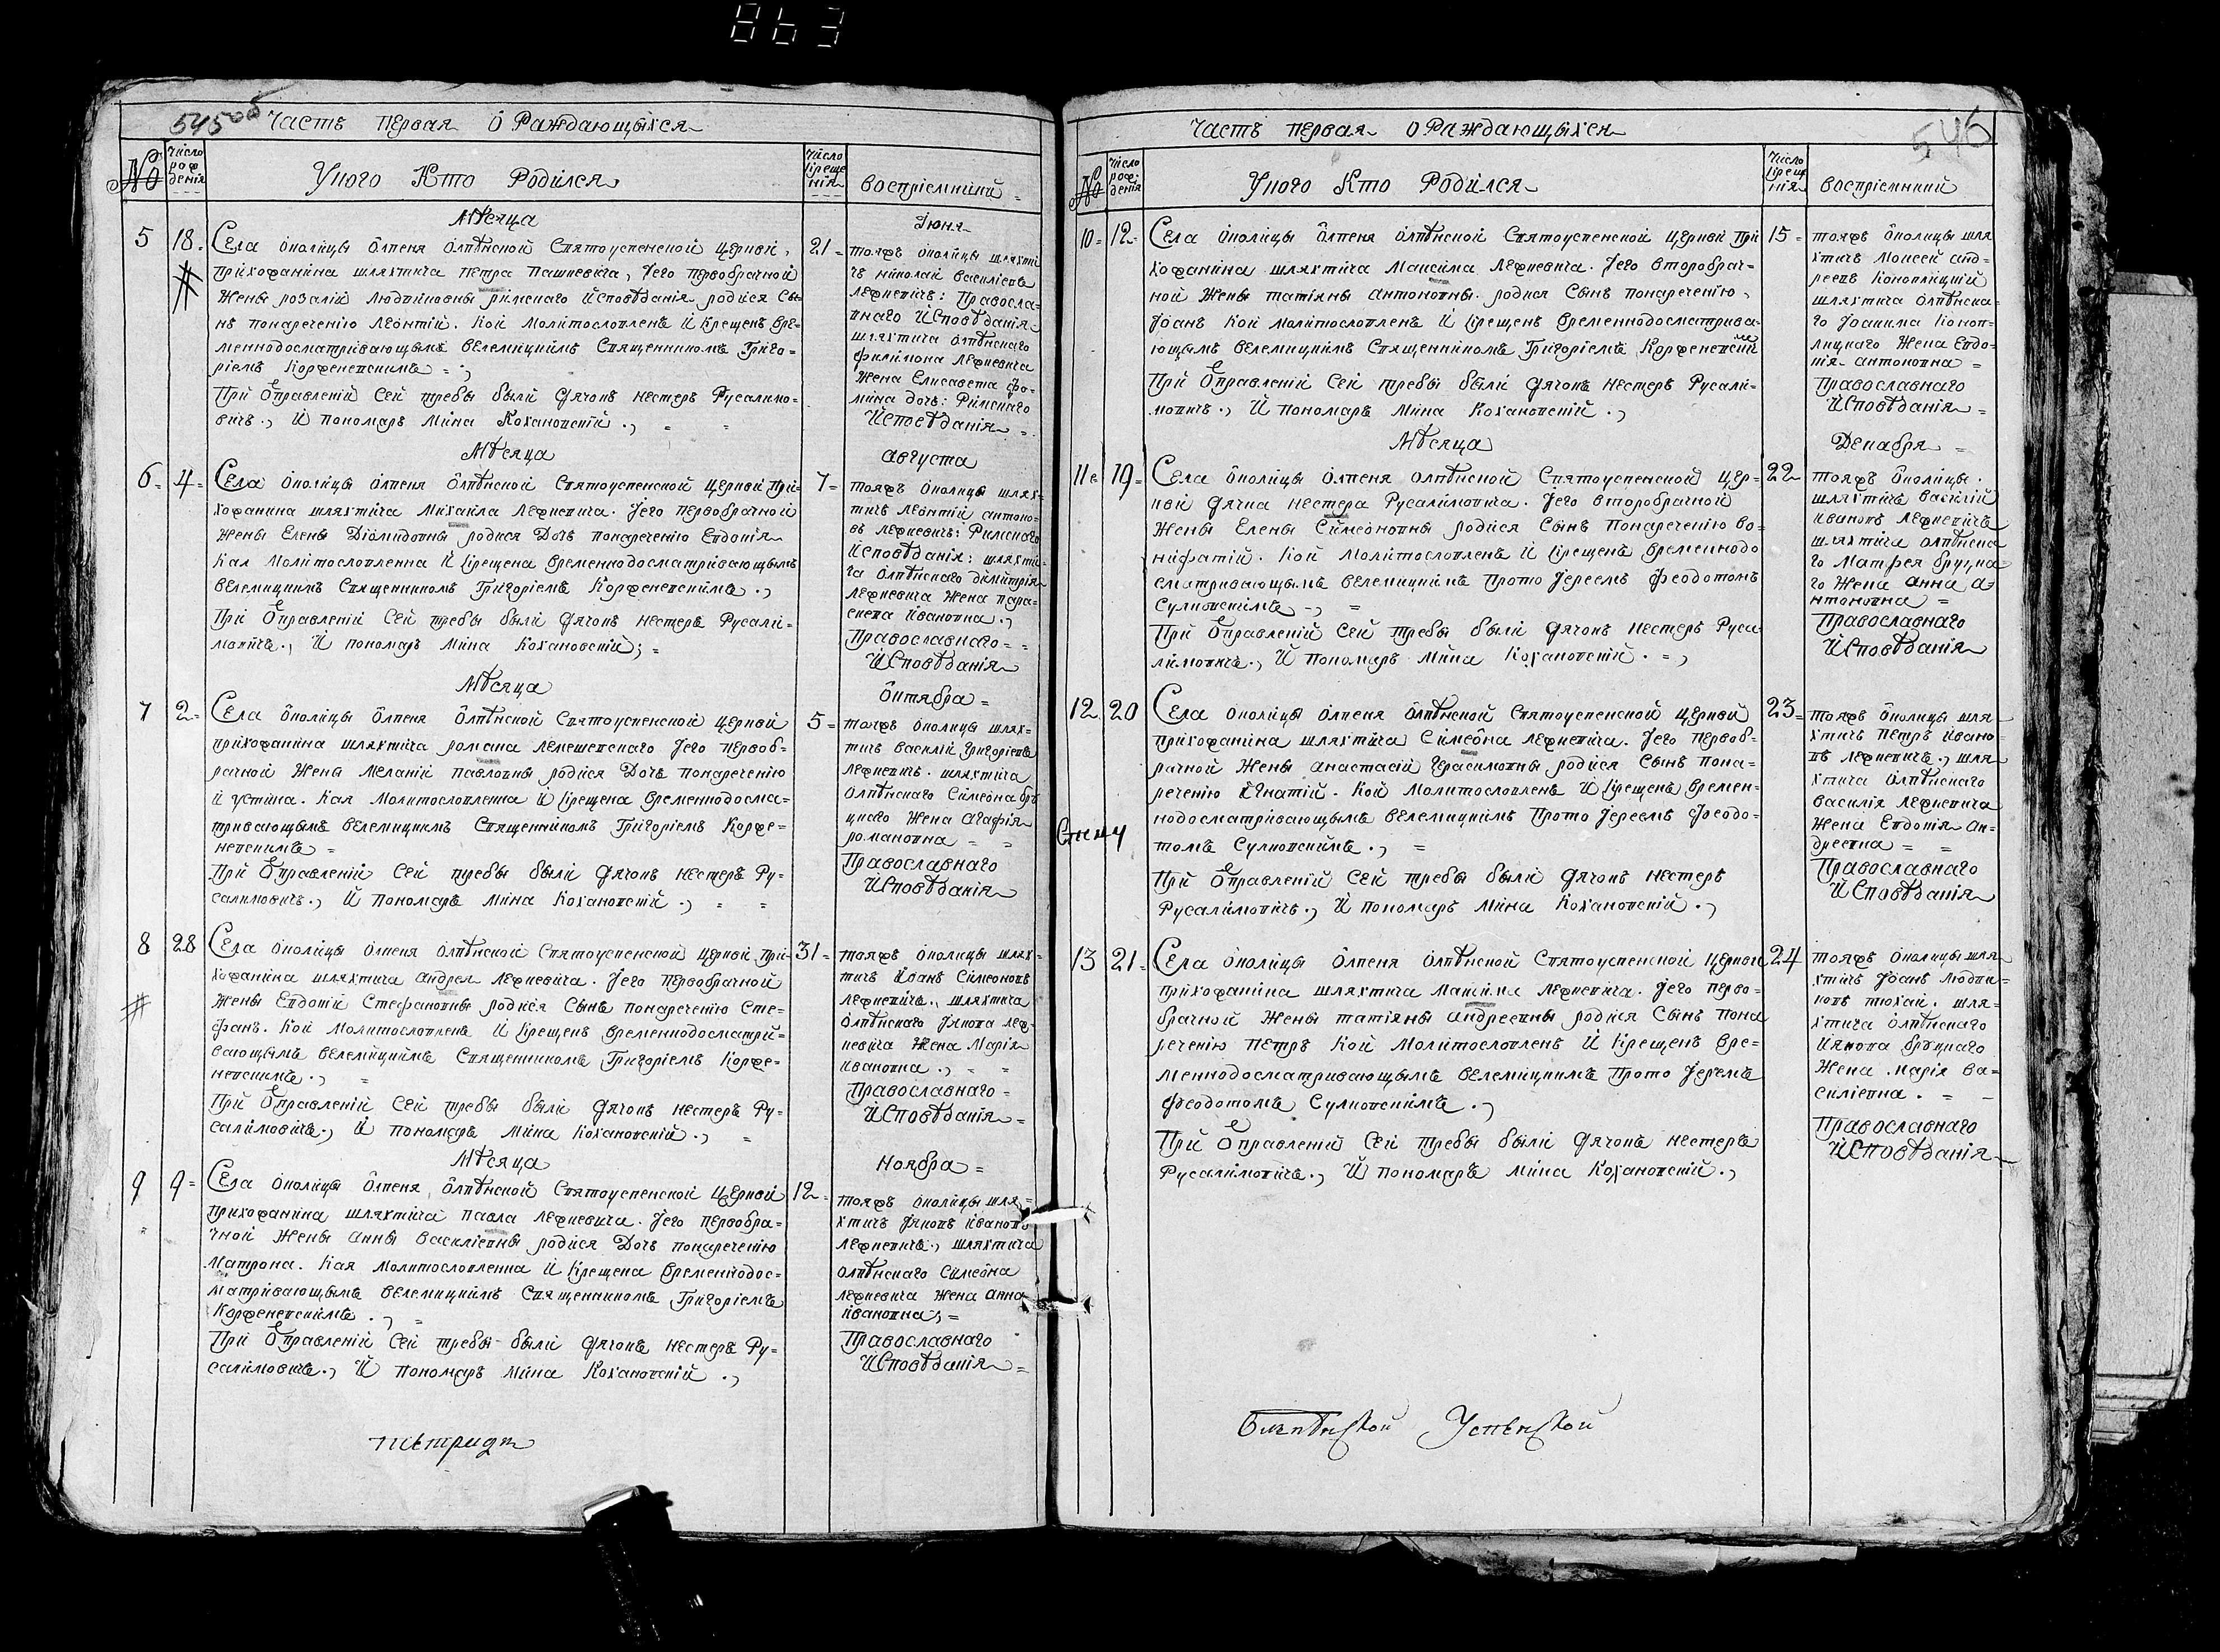 863
545об
Часть первая О Раждающыхся
№
Число рождения
Укого Кто Родился
Число крещенія
Воспріемники
Мѣсяца Іюня
5 18. 21
Села Околицы Олпеня Олпѣнской Святоуспенской Церкви,
прихожанина шляхтича Петра Пашкевича, Его первобрачной
Жены розалій Людвиковны римскаго Исповѣданія родися Сы-
нъ понаречению Леонтий. Кой Молитословленъ И Крещенъ вре-
меннодосматривающымъ велемицкимъ Священникомъ Григо-
ріемъ Корженевскимъ
При Отправленій Сей требы были Дячокъ нестеръ Русалимо-
вичъ., И пономарь Мина Кохановский.,
тояжъ Околицы шляхти
чъ николай василіевъ
Лежневичъ: Правосла-
внаго Исповѣданія
шляхтича Олпѣнскаго
филимона Лежневича
Жена Елисавета Фо-
мина дочъ: Римскаго
Исповѣданія
Мѣсяца Августа
6 4 7
Села Околицы Олпеня Олпѣнской Святоуспенской Церкви При-
хожанина шляхтича Михаила Лежневича. Его первобрачной
Жены Елены Діомидовны родися Дочъ понаречению Евдокія
Кая Молитословленна И Крещена временнодосматривающымъ
велемицкимъ Священникомъ Григоріемъ Корженевскимъ.,
При Отправленій Сей требы были Дячокъ нестеръ Русали-
мовичъ., И пономарь Мина Кохановский;
тояжъ Околицы шлях-
тичъ Леонтий антоно-
въ Лежневичъ: Римскаго
Исповѣданія: шляхти-
ча Олпѣнскаго димитрія
Лежневича Жена пара-
скева Ивановна.,
Православнаго
Исповѣданія
Мѣсяца Октября
7 2 5
Села Околицы Олпеня Олпѣнской Святоуспенской Церкви
прихожанина шляхтича романа Лемешевскаго Его первоб-
рачной Жены Меланій павловны родися Дочъ понаречению
Иустина. Кая Молитословленна И Крещена временнодосма-
тривающымъ велемицкимъ Священникомъ Григоріемъ Корже-
невскимъ
При Отправленій Сей требы были Дячокъ нестеръ Ру-
салимовичъ., И Пономарь Мина Кохановский.,
тояжъ Околицы шлях-
тичъ василий григоріевъ
Лежневичъ. шляхтича
Олпѣнскаго Симеона бру
цкаго Жена агафія
романовна
Православнаго
Исповѣданія
8 28 31
Села Околицы Олпеня Олпѣнской Святоуспенской Церкви При-
хожанина шляхтича андрея Лежневича. Его первобрачной
Жены Евдокій Стефановны родися Сынъ понаречению Сте-
фанъ. Кой Молитословленъ И Крещенъ временнодосматри-
вающымъ велемицкимъ Священникомъ Григоріемъ Корже-
невскимъ.,
При Отправленій Сей требы были Дячокъ нестеръ Ру-
салимовичъ., И пономарь Мина Кохановский.,
тояжъ Околицы шлях-
тичъ Иванъ Симеоновъ
Лежневичъ., шляхтича
Олпѣнскаго Якова леж-
невича Жена Марія
Ивановна.,
Православнаго
Исповѣданія
Мѣсяца Ноября
9 9 12
Села Околицы Олпеня Олпѣнской Святоуспенской Церкви
Прихожанина шляхтича павла Лежневича. Его первобра-
чной Жены анны василіевны родися Дочъ понаречению
Матрона. Кая Молитословленна И Крещена временнодос-
матривающымъ велемицкимъ Священникомъ Григоріемъ
Корженевскимъ.,
При Отправленій Сей требы были Дячокъ нестеръ Ру-
салимовичъ., И пономарь Мина Кохановский.,
тояжъ Околицы шля-
хтичъ Яковъ Ивановъ
Лежневичъ., шляхтича
Олпѣнскаго Симеона
Лежневича Жена анна
Ивановна;
Православнаго
Исповѣданія
546
Часть первая О Раждающыхся
№
Число рожденія
Укого Кто Родился
Число крещ нія
Воспріемники
10 12 15
Села Околицы Олпеня Олпѣнской Святоуспенской Церкви При
хожанина шляхтича Максима Лежневича. Его второбрач-
ной Жены татіяны антоновны. родися Сынъ понаречению
Іоанъ Кой Молитословленъ И Крещенъ временнодосматрива-
ющымъ велемицкимъ Священникомъ Григоріемъ Корженевским
При Отправленій Сей требы были Дячокъ нестеръ Русали-
мовичъ., И пономарь Мина Кохановский.,
тояжъ Околицы шля
хтичъ Моисей анд-
реевъ Коноплицкий
шляхтича Олпѣнска-
го Іоакима Коноп-
лицкаго Жена Евдо-
кія антоновна
Православнаго
Исповѣданія
Мѣсяца Декабря
11 19 22
Села Околицы Олпеня Олпѣнской Святоуспенской Цер-
кви дячка нестера Русалимовича. Его второбрачной
Жены Елены Симеоновны родися Сынъ Понаречению во-
нифатий. Кой Молитословленъ И Крещенъ временнодо
сматривающымъ велемицкимъ Прото Іереемъ феодотомъ
Сулковскимъ
При Отправленій Сей требы были Дячокъ нестеръ Руса
лимовичъ., И Пономарь Мина Кохановский.
тояжъ Околицы.
шляхтичъ василий
Ивановъ Лежневичъ
шляхтича Олпѣнска
го Матфея бруцка
го Жена анна а-
нтоновна
Православнаго
Исповѣданія
12 20 23
Села Околицы Олпеня Олпѣнской Святоуспенской Церкви
прихожанина шляхтича Симеона Лежневича. Его первоб-
рачной Жены анастасій Герасимовны родися Сынъ пона-
речению Игнатий. Кой Молитословленъ И Крещенъ времен-
нодосматривающымъ велемицкимъ Прото Іереемъ феодо-
томъ Сулковскимъ.,
При Отправленій Сей требы были Дячокъ нестеръ
Русалимовичъ., И пономарь Мина Кохановский.,
тояжъ Околицы шля
хтичъ Петръ Ивано-
въ Лежневичъ., шля
хтича Олпѣнскаго
василія Лежневича
Жена Евдокія ан-
дреевна
Православнаго
Исповѣданія
13 21 24
Села Околицы Олпеня Олпѣнской Святоуспенской Церкви
Прихожанина шляхтича Максима Лежневича. Его перво-
брачной Жены татіяны андреевны родися Сынъ пона
речению Петръ Кой Молитословленъ И Крещенъ вре-
меннодосматривающымъ велемицкимъ Прото Іереемъ
феодотомъ Сулковскимъ.,
При Отправленій Сей требы были Дячокъ нестеръ
Русалимовичъ., И пономарь Мина Кохановский.,
тояжъ Околицы шля-
хтичъ Іоанъ Людви-
ковъ тюхай. шля-
хтича Олпѣнскаго
Иякова бруцкаго
Жена Марія ва-
силіевна.
Православнаго
Исповѣданія
Олпѣнской Успенской